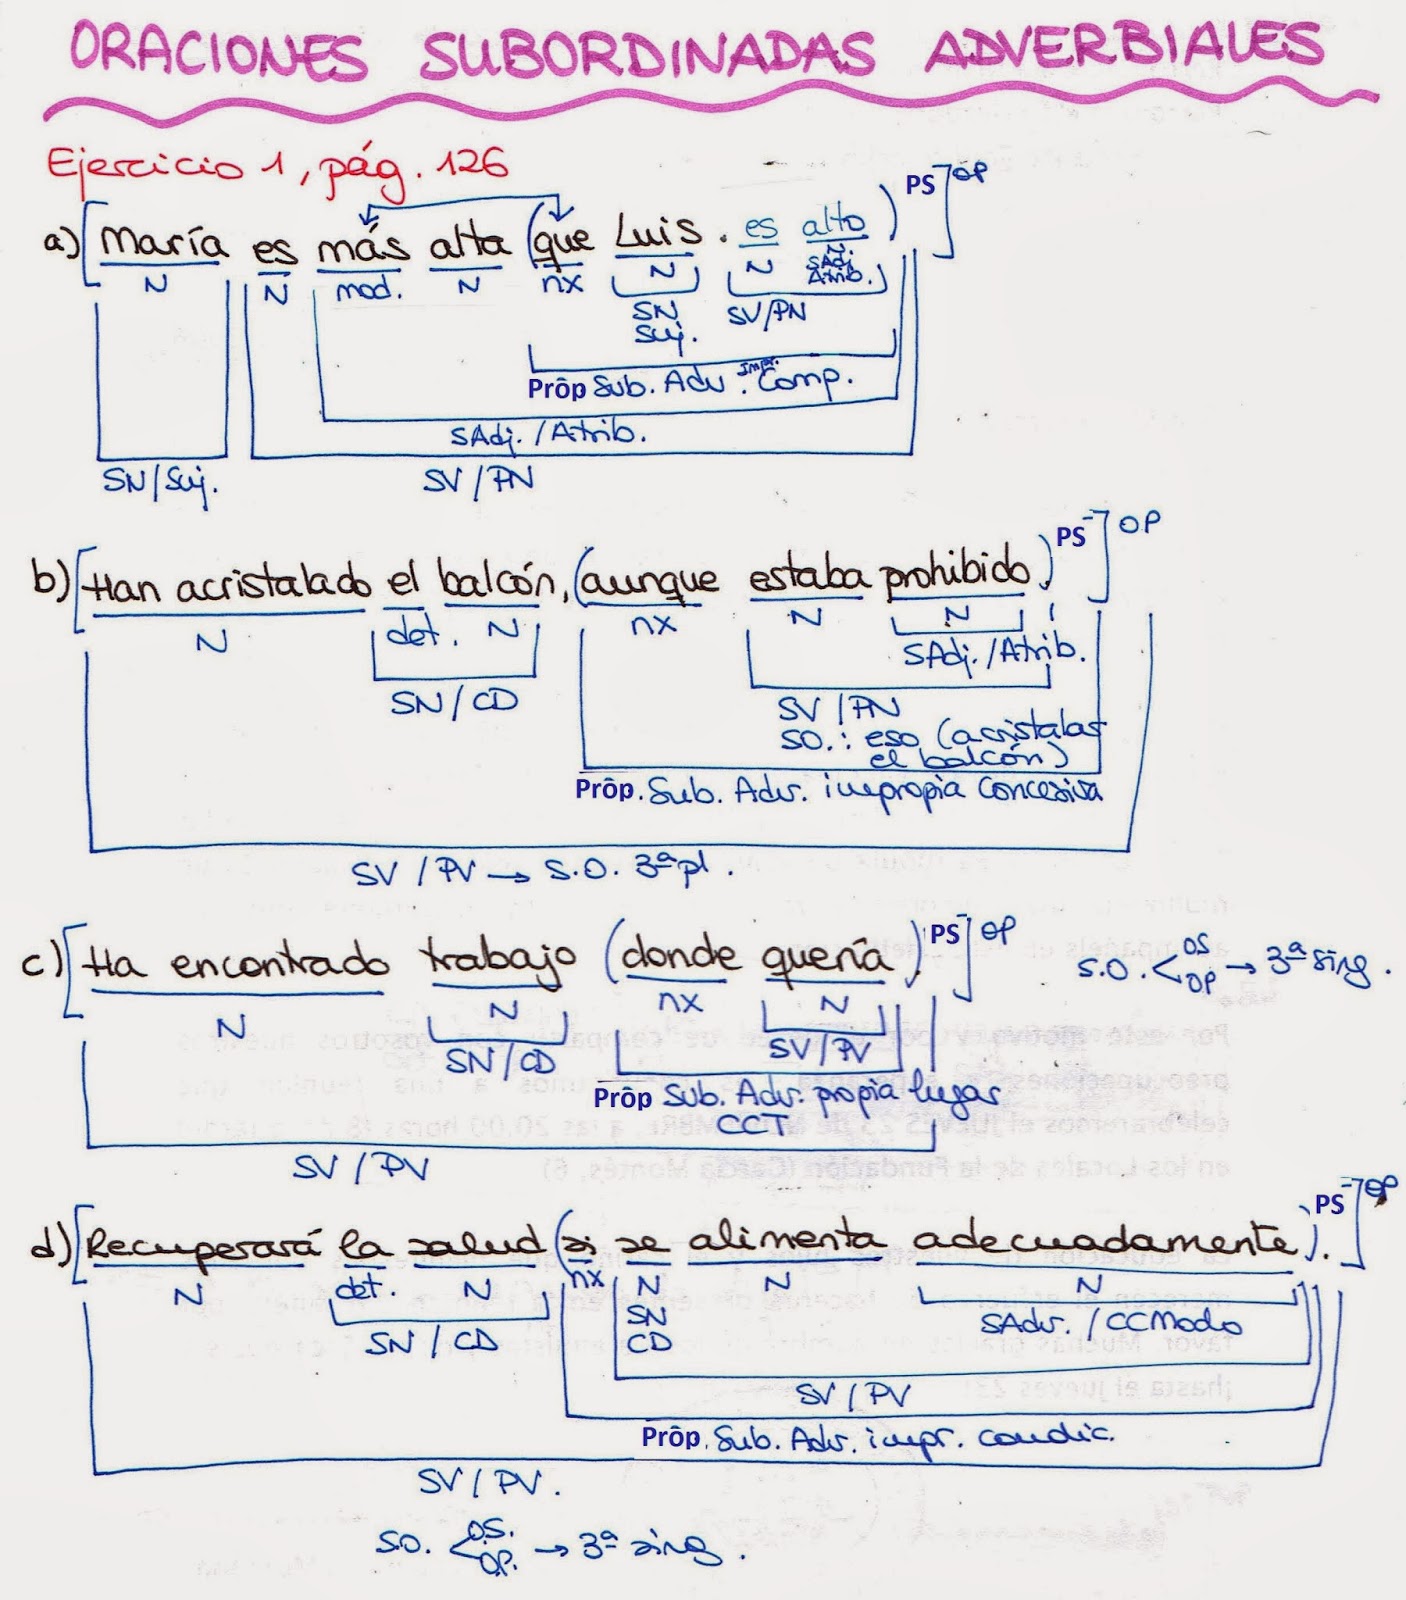 ORACIONES SUBORDINADAS ADVERBIALES
Ejercicio 1, pág. 126
a) [María es más alta (que Luis. es alto) PS ] OP
N N mod. N nx N N N
SAdj.
Atrib.
SN SV/PN
Suj.
Prôp Sub. Adv. Impr. Comp.
SAdj. / Atrib.
SN/Suj. SV / PN
b) [Han acristalado el balcón, (aunque estaba prohibido.) PS ] OP
N det. N nx N N
SAdj. / Atrib.
SN / CD SV / PN
SO.: eso (acristalar
el balcón)
Prôp. Sub. Adv. impropia Concesiva
SV / PV → S.O. 3ª pl.
c) [Ha encontrado trabajo (donde quería). PS ] OP S.O. < OS OP → 3ª sing.
N N nx N
SN / CD SV / PV
Prôp Sub. Adv. propia lugar
CCT
SV / PV
d) [Recuperará la salud (si se alimenta adecuadamente). PS ] OP
N det. N nx N N N
SN / CD SN SAdv. / CCModo
CD
SV / PV
Prôp. Sub. Adv. impr. condic.
SV / PV.
S.O. < O.S. O.P. → 3ª sing.